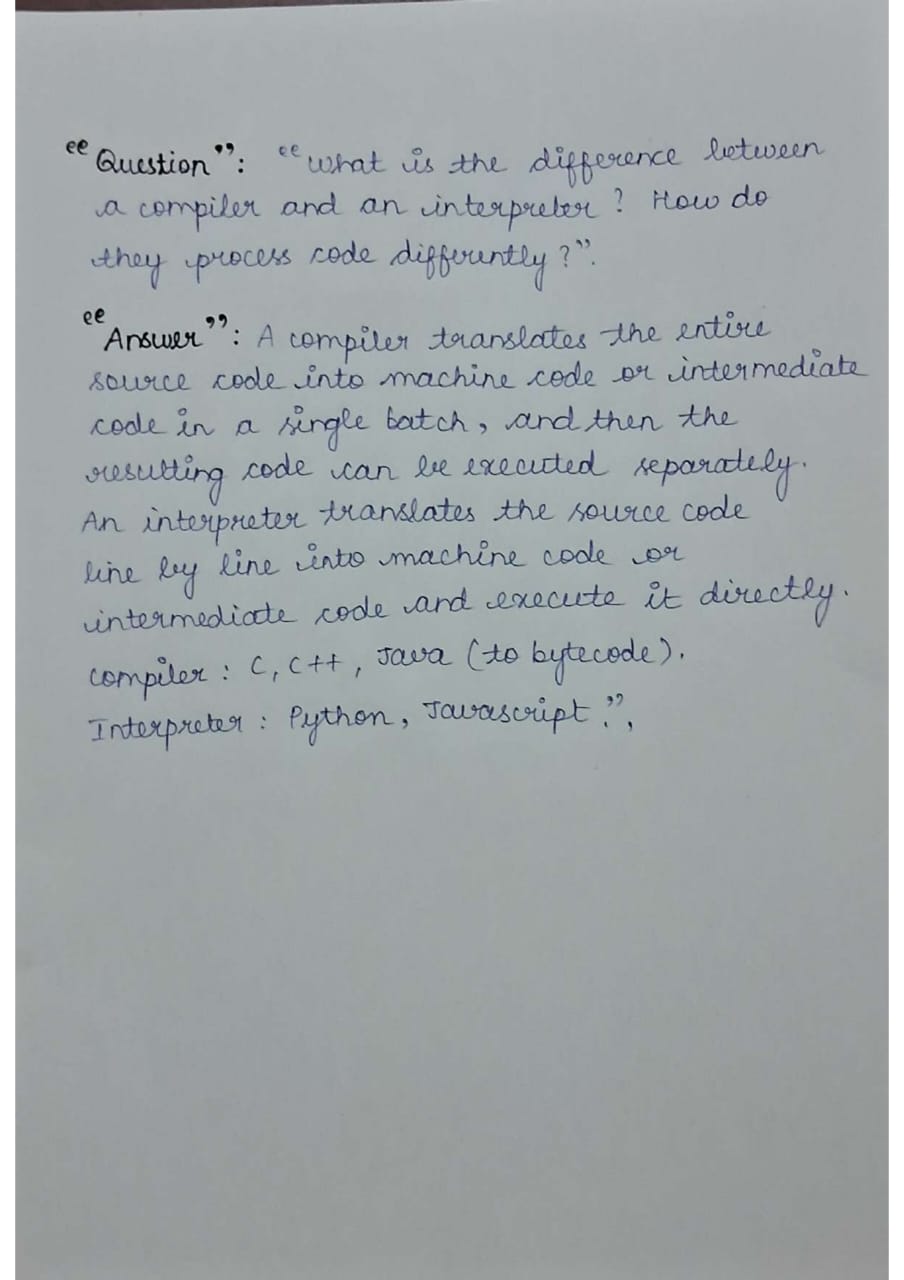 "Question": "What is the difference between
a compiler and an interpreter? How do
they process code differently?".
"Answer": A compiler translates the entire
source code into machine code or intermediate
code in a single batch, and then the
resulting code can be executed separately.
An interpreter translates the source code
line by line into machine code or
intermediate code and execute it directly.
compiler: C, C++, Java (to bytecode).
Interpreter: Python, Javascript.",